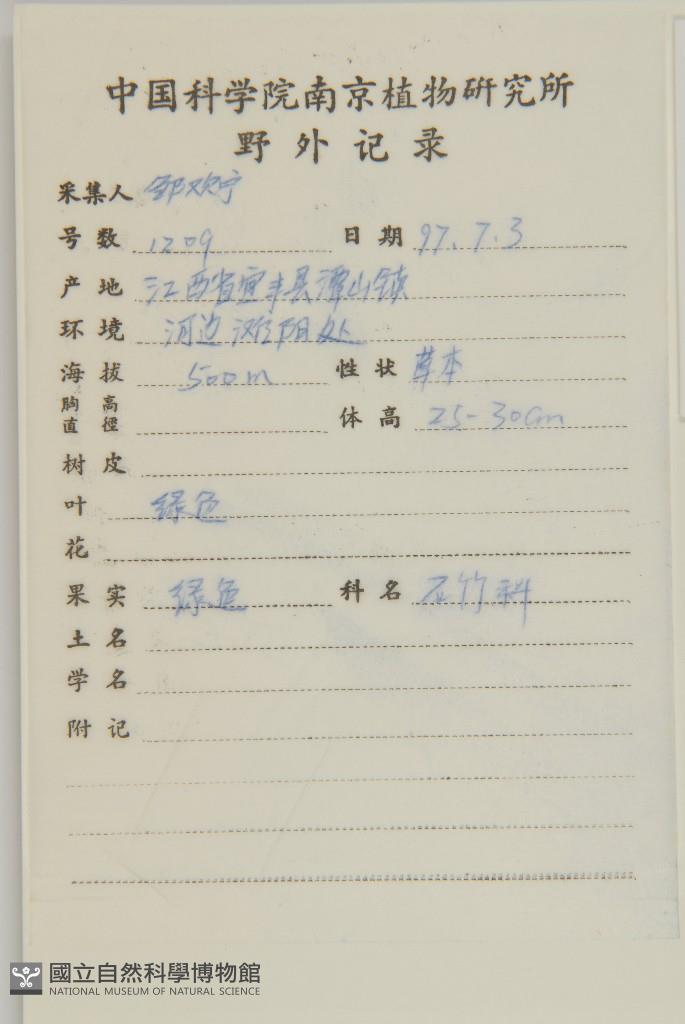 中国科学院南京植物研究所
野外记录
采集人 邹欢宁
号数 1209 日期 97.7.3
产地 江西省宜丰县潭山镇
环境 河边滩阳处
海拔 500m 性状 草本
胸高直径 体高 25-30cm
树皮
叶 绿色
花
果实 绿色 科名 石竹科
土名
学名
附记
國立自然科學博物館
NATIONAL MUSEUM OF NATURAL SCIENCE